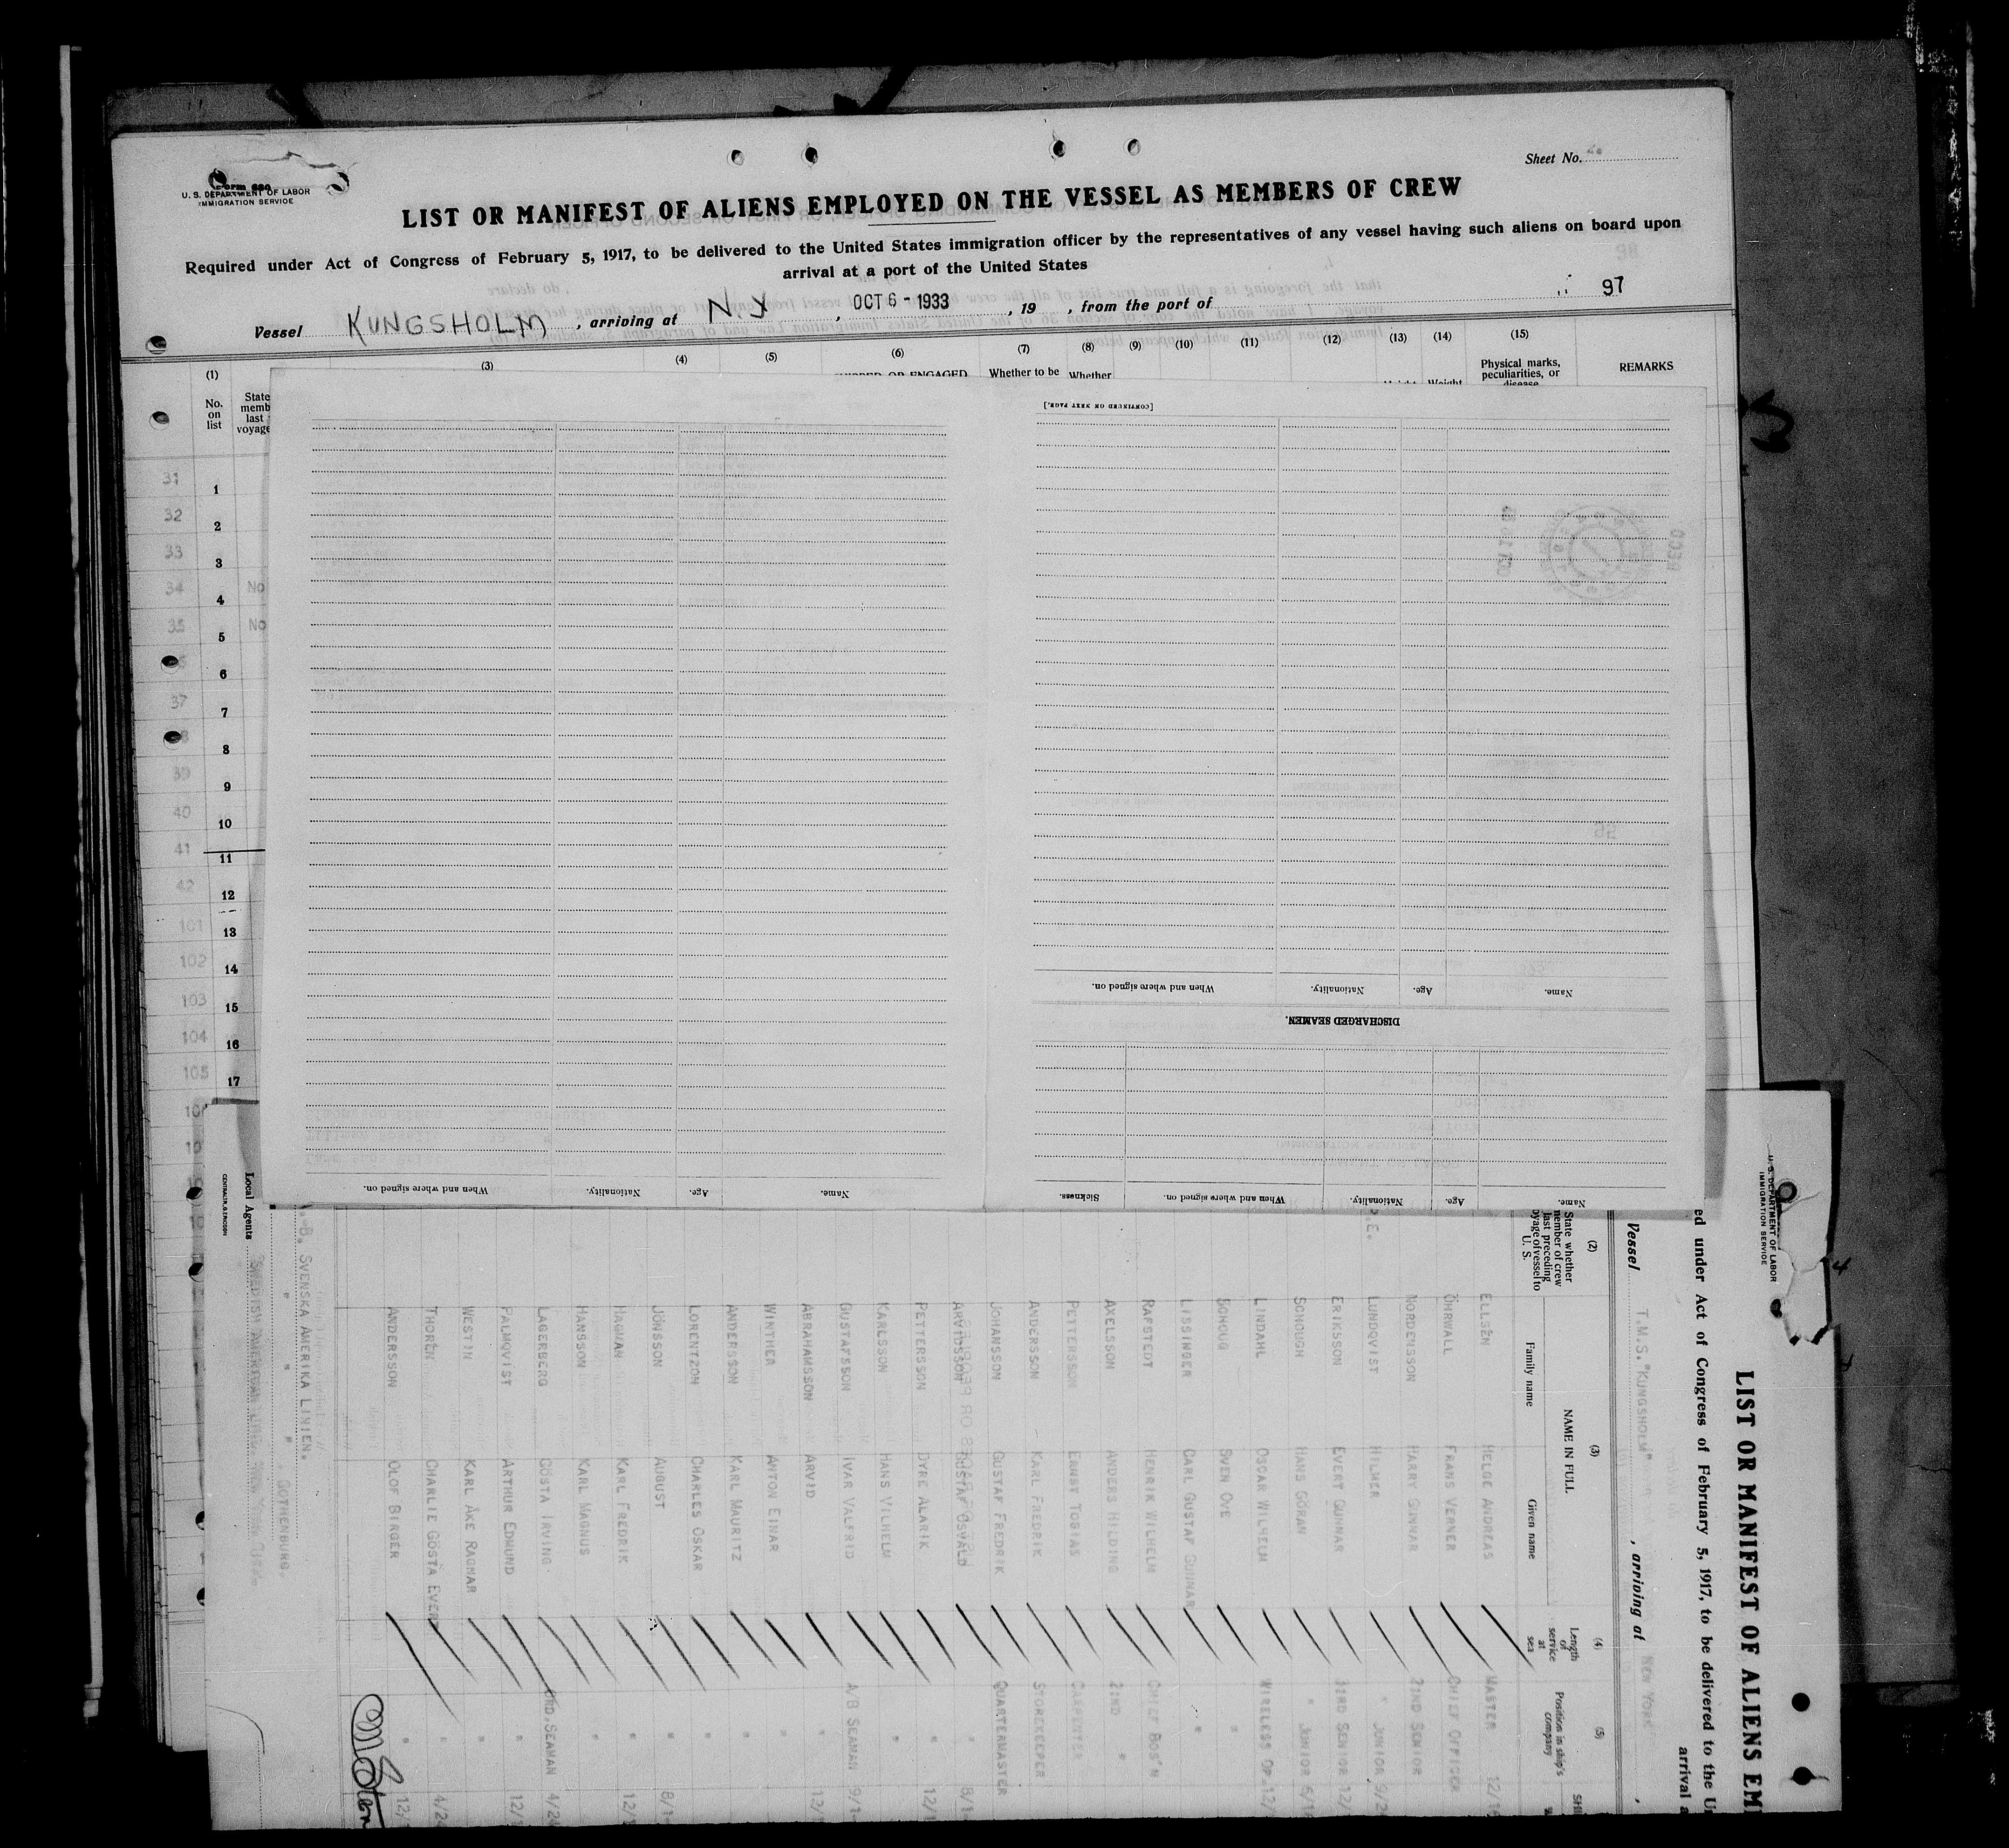 Sheet No.
Form 680
U. S. DEPARTMENT OF LABOR
IMMIGRATION SERVICE
LIST OR MANIFEST OF ALIENS EMPLOYED ON THE VESSEL AS MEMBERS OF CREW
Required under Act of Congress of February 5, 1917, to be delivered to the United States immigration officer by the representatives of any vessel having such aliens on board upon
arrival at a port of the United States
Vessel KUNGSHOLM, arriving at N.Y, OCT 6 - 1933, 19 , from the port of 97
(1) (3) (4) (5) (6) (7) (8) (9) (10) (11) (12) (13) (14) (15)
No. on list
State
memb
last
voyage
Whether to be
Whether
Physical marks, peculiarities, or disease
REMARKS
31 1
32 2
33 3
34 No 4
35 No 5
6
37 7
8
39 9
40 10
41 11
42 12
101 13
102 14
103 15
104 16
105 17
[CONTINUED ON NEXT PAGE.]
When and where signed on. Nationality. Age. Name.
DISCHARGED SEAMEN.
When and where signed on. Nationality. Age. Name.
Sickness. When and where signed on. Nationality. Age. Name.
U. S. DEPARTMENT OF LABOR
IMMIGRATION SERVICE
LIST OR MANIFEST OF ALIENS EM
ed under Act of Congress of February 5, 1917, to be delivered to the U
arrival a
Vessel T.M.S."KUNGSHOLM" , arriving at NEW YORK ,
(2) (3) (4) (5)
State whether member of crew last preceding voyage of vessel to U. S.
NAME IN FULL
Family name Given name
Length of service at sea
Position in ship's company
ELLSÉN HELGE ANDREAS MASTER 12/16
ÖHRWALL FRANS VERNER CHIEF OFFICER
NORDENSSON HARRY GUNNAR 2:ND SENIOR
LUNDQVIST HILMER " JUNIOR 9/2
ERIKSSON EVERT GUNNAR 3:RD SENIOR 12/1
SCHOUGH HANS GÖRAN " JUNIOR 6/1
LINDAHL OSCAR WILHELM WIRELESS OP. 12/
SCHOUG SVEN OVE "
LISSINGER CARL GUSTAF GUNNAR "
RAFSTEDT HENRIK WILHELM CHIEF BOS'N
AXELSSON ANDERS HILDING 2:ND "
PETTERSSON ERNST TOBIAS CARPENTER
ANDERSSON KARL FREDRIK STOREKEEPER
JOHANSSON GUSTAF FREDRIK QUARTERMASTER
ARVIDSSON GUSTAF OSVALD " 8/1
PETTERSSON DYRE ALARIK " 12/1
KARLSSON HANS VILHELM "
GUSTAFSSON IVAR VALFRID A/B SEAMAN 9/1
ABRAHAMSSON ARVID " 12/
WINTHER ANTON EINAR "
ANDERSSON KARL MAURITZ "
LORENTZON CHARLES OSKAR "
JÖNSSON AUGUST " 8/1
HAGMAN KARL FREDRIK " 12/1
HANSSON KARL MAGNUS "
LAGERBERG GÖSTA IRVING ORD.SEAMAN 4/2
PALMQVIST ARTHUR EDMUND " 12/1
WESTIN KARL ÅKE RAGNAR "
THORÉN CHARLIE GÖSTA EVERT " 4/24
ANDERSSON OLOF BIRGER " 12/
.-B. SVENSKA AMERIKA LINIEN.
" " " , GOTHENBURG.
Local Agents SWEDISH AMERICAN LINE, NEW YORK